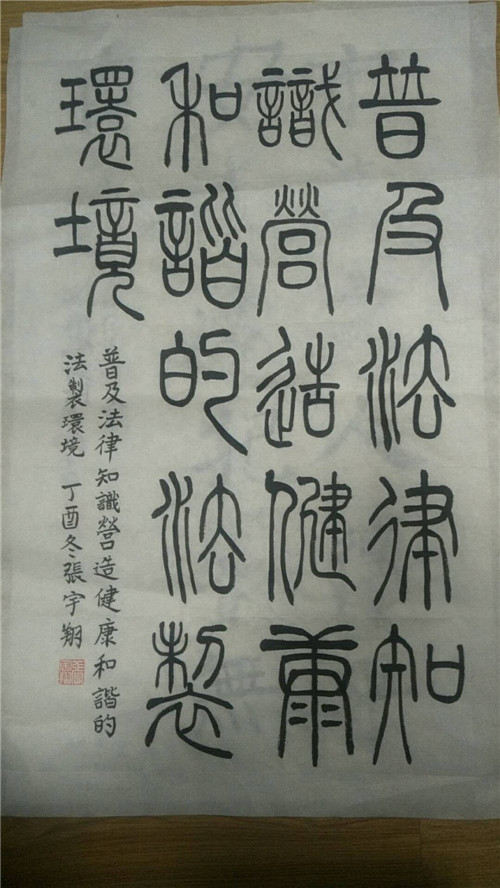 普及法律知
識營造健康
和諧的法製
環境
普及法律知識營造健康和諧的
法製環境 丁酉冬張宇翔